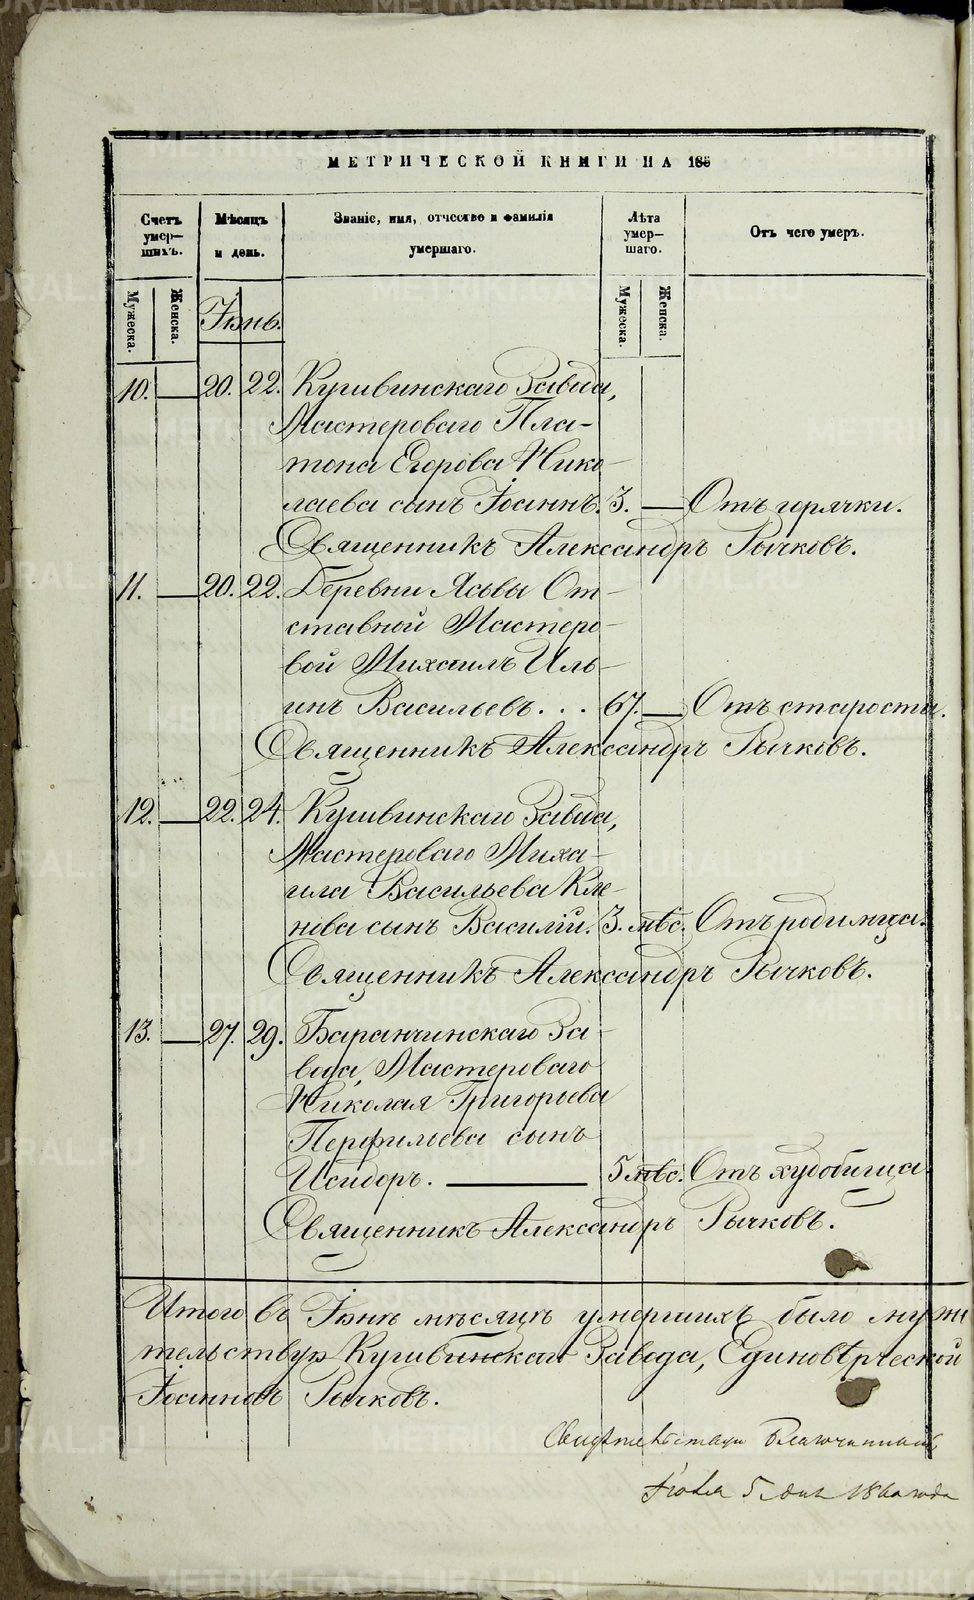 МЕТРИЧЕСКОЙ КНИГИ НА 185
Счетъ умер-шихъ.
Мѣсяцъ и день.
Званіе, имя, отчество и фамилія умершаго.
Лѣта умер-шаго.
Отъ чего умеръ.
Мужеска.
Женска.
Іюнь.
Мужеска.
Женска.
10. — 20. 22. Кушвинскаго Завода,
Мастероваго Пла-
тона Егорова Нико-
лаева сынъ Іоаннъ. 3. — Отъ горячки.
Священникъ Александръ Рычковъ.
11. — 20. 22. Деревни Ясьвы От-
ставной Мастеро-
вой Михаилъ Иль-
инъ Васильевъ... 67. — Отъ старости.
Священникъ Александръ Рычковъ.
12. — 22. 24. Кушвинскаго Завода,
Мастероваго Миха-
ила Васильева Кле-
нова сынъ Василій. 3. мѣс. Отъ родимца.
Священникъ Александръ Рычковъ.
13. — 27. 29. Баранчинскаго За-
вода, Мастероваго
Николая Григорьева
Перфильева сынъ
Исидоръ. — 5 мѣс. Отъ худобища.
Священникъ Александръ Рычковъ.
Итого въ Іюнѣ мѣсяцѣ умершихъ было муже
тельствую Кушвинскаго Завода, Единовѣрческой
Іоанновъ Рычковъ.
Благочинный
Іюля 5 дня 1860 года